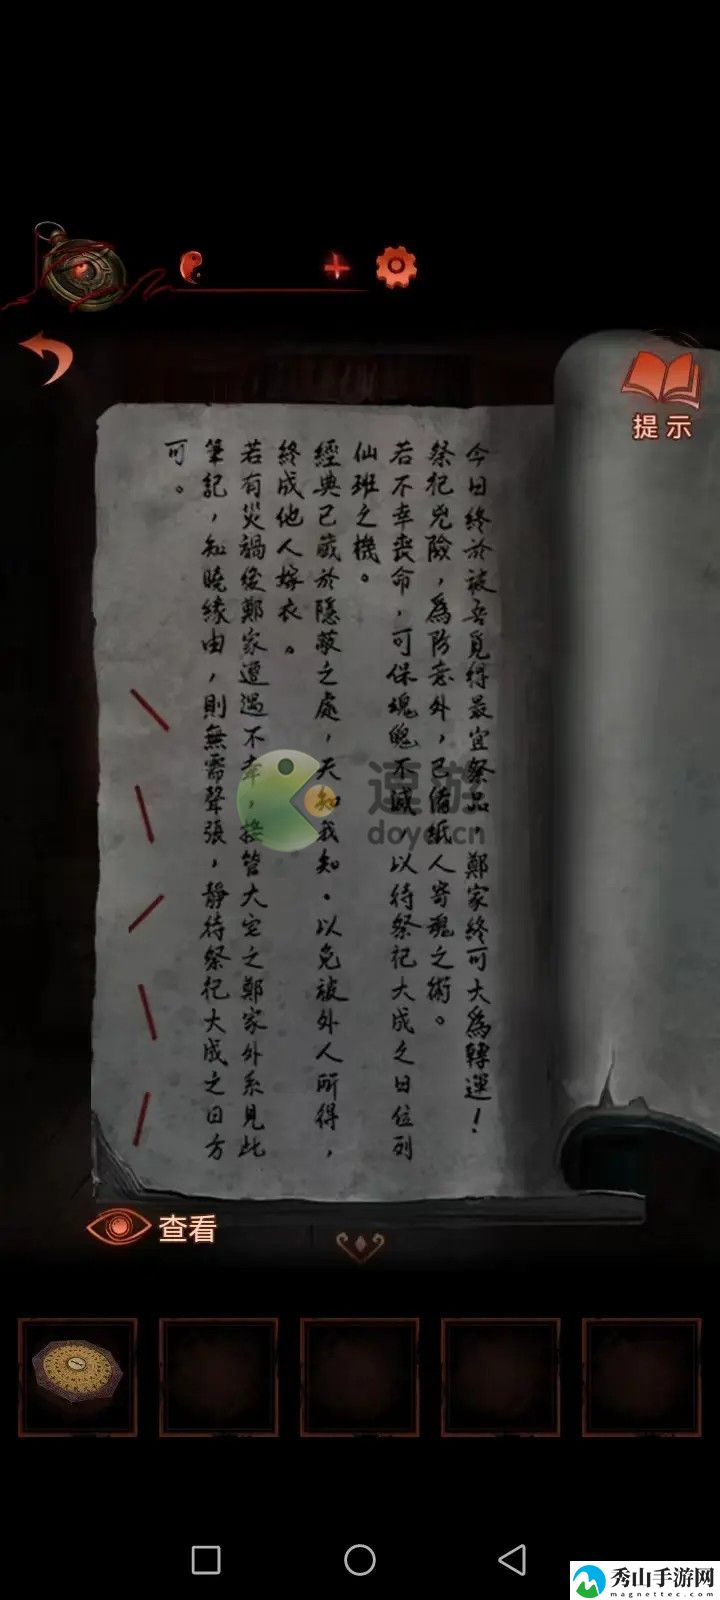 提示
今日終於被吾覓得最宜祭品，鄭家終可大為轉運！
祭祀兇險，為防意外，已備紙人寄魂之術。
若不幸喪命，可保魂魄不滅，以待祭祀大成之日位列
仙班之機。
經典已藏於隱蔽之處，天知我知。以免被外人所得，
終成他人嫁衣。
若有災禍後鄭家遭遇不幸，接管大宅之鄭家外系見此
筆記，知曉緣由，則無需聲張，靜待祭祀大成之日方
可。
逗游
doyo.cn
查看
秀山手游网
magnettec.com